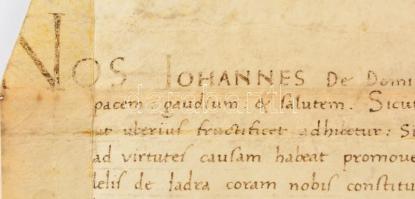 NOS IOHANNES De Domi
pacem gaudium & salutem. Sicut
ut uberius fructificet adhibetur: Si
ad virtutes causam habeat promove
delis de Iadra coram nobis constitu